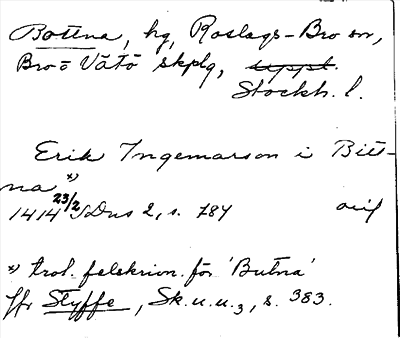 Bottna, hg, Roslags-Bro sn,
Bro o Vätö skplg, uppl.
Stockh. l.
Erik Ingemarson i Bitt-
na *)
1414 23/2 SDns 2, s. 784 avs
*) trol. felskrivn. för 'Butna'
Jfr Styffe, Sk.u.u.3, s. 383.